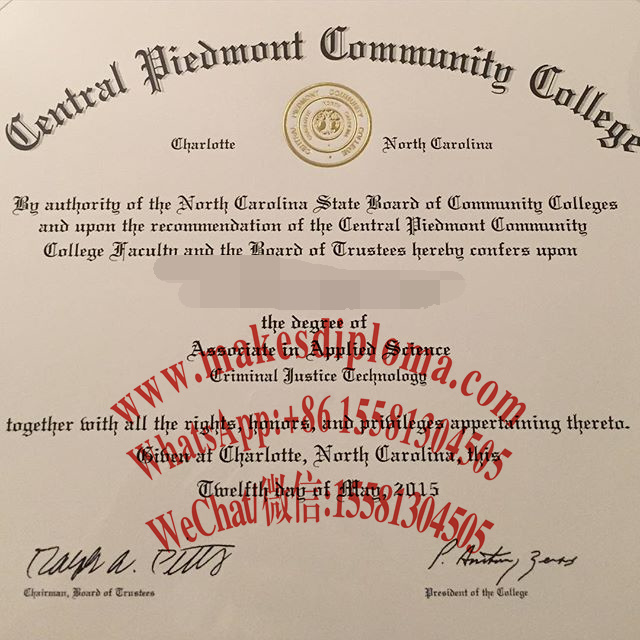 Central Piedmont Community College
CENTRAL PIEDMONT COMMUNITY COLLEGE
Charlotte North Carolina
By authority of the North Carolina State Board of Community Colleges
and upon the recommendation of the Central Piedmont Community
College Faculty and the Board of Trustees hereby confers upon
the degree of
Associate in Applied Science
Criminal Justice Technology
www.makesdiploma.com
together with all the rights, honors, and privileges appertaining thereto.
WhatsApp:+86 15581304505
Given at Charlotte, North Carolina, this
Twelfth day of May, 2015
WeChat/微信:15581304505
Ralph A. Pitts
Chairman, Board of Trustees President of the College